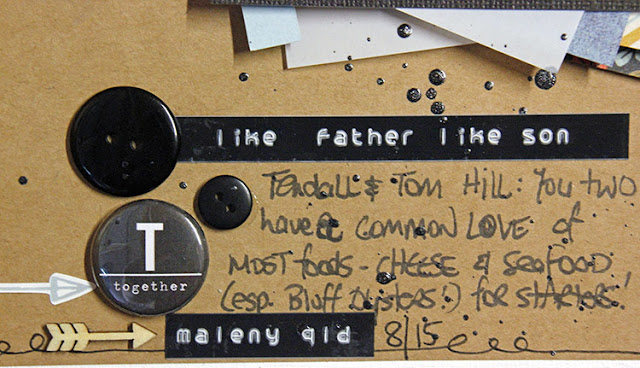 like father like son
Tendall & Tom Hill: You two
have a COMMON LOVE of
MOST foods - CHEESE & SEAFOOD
(esp. Bluff Oysters!) for STARTERS!
T
together
maleny qld 8/15